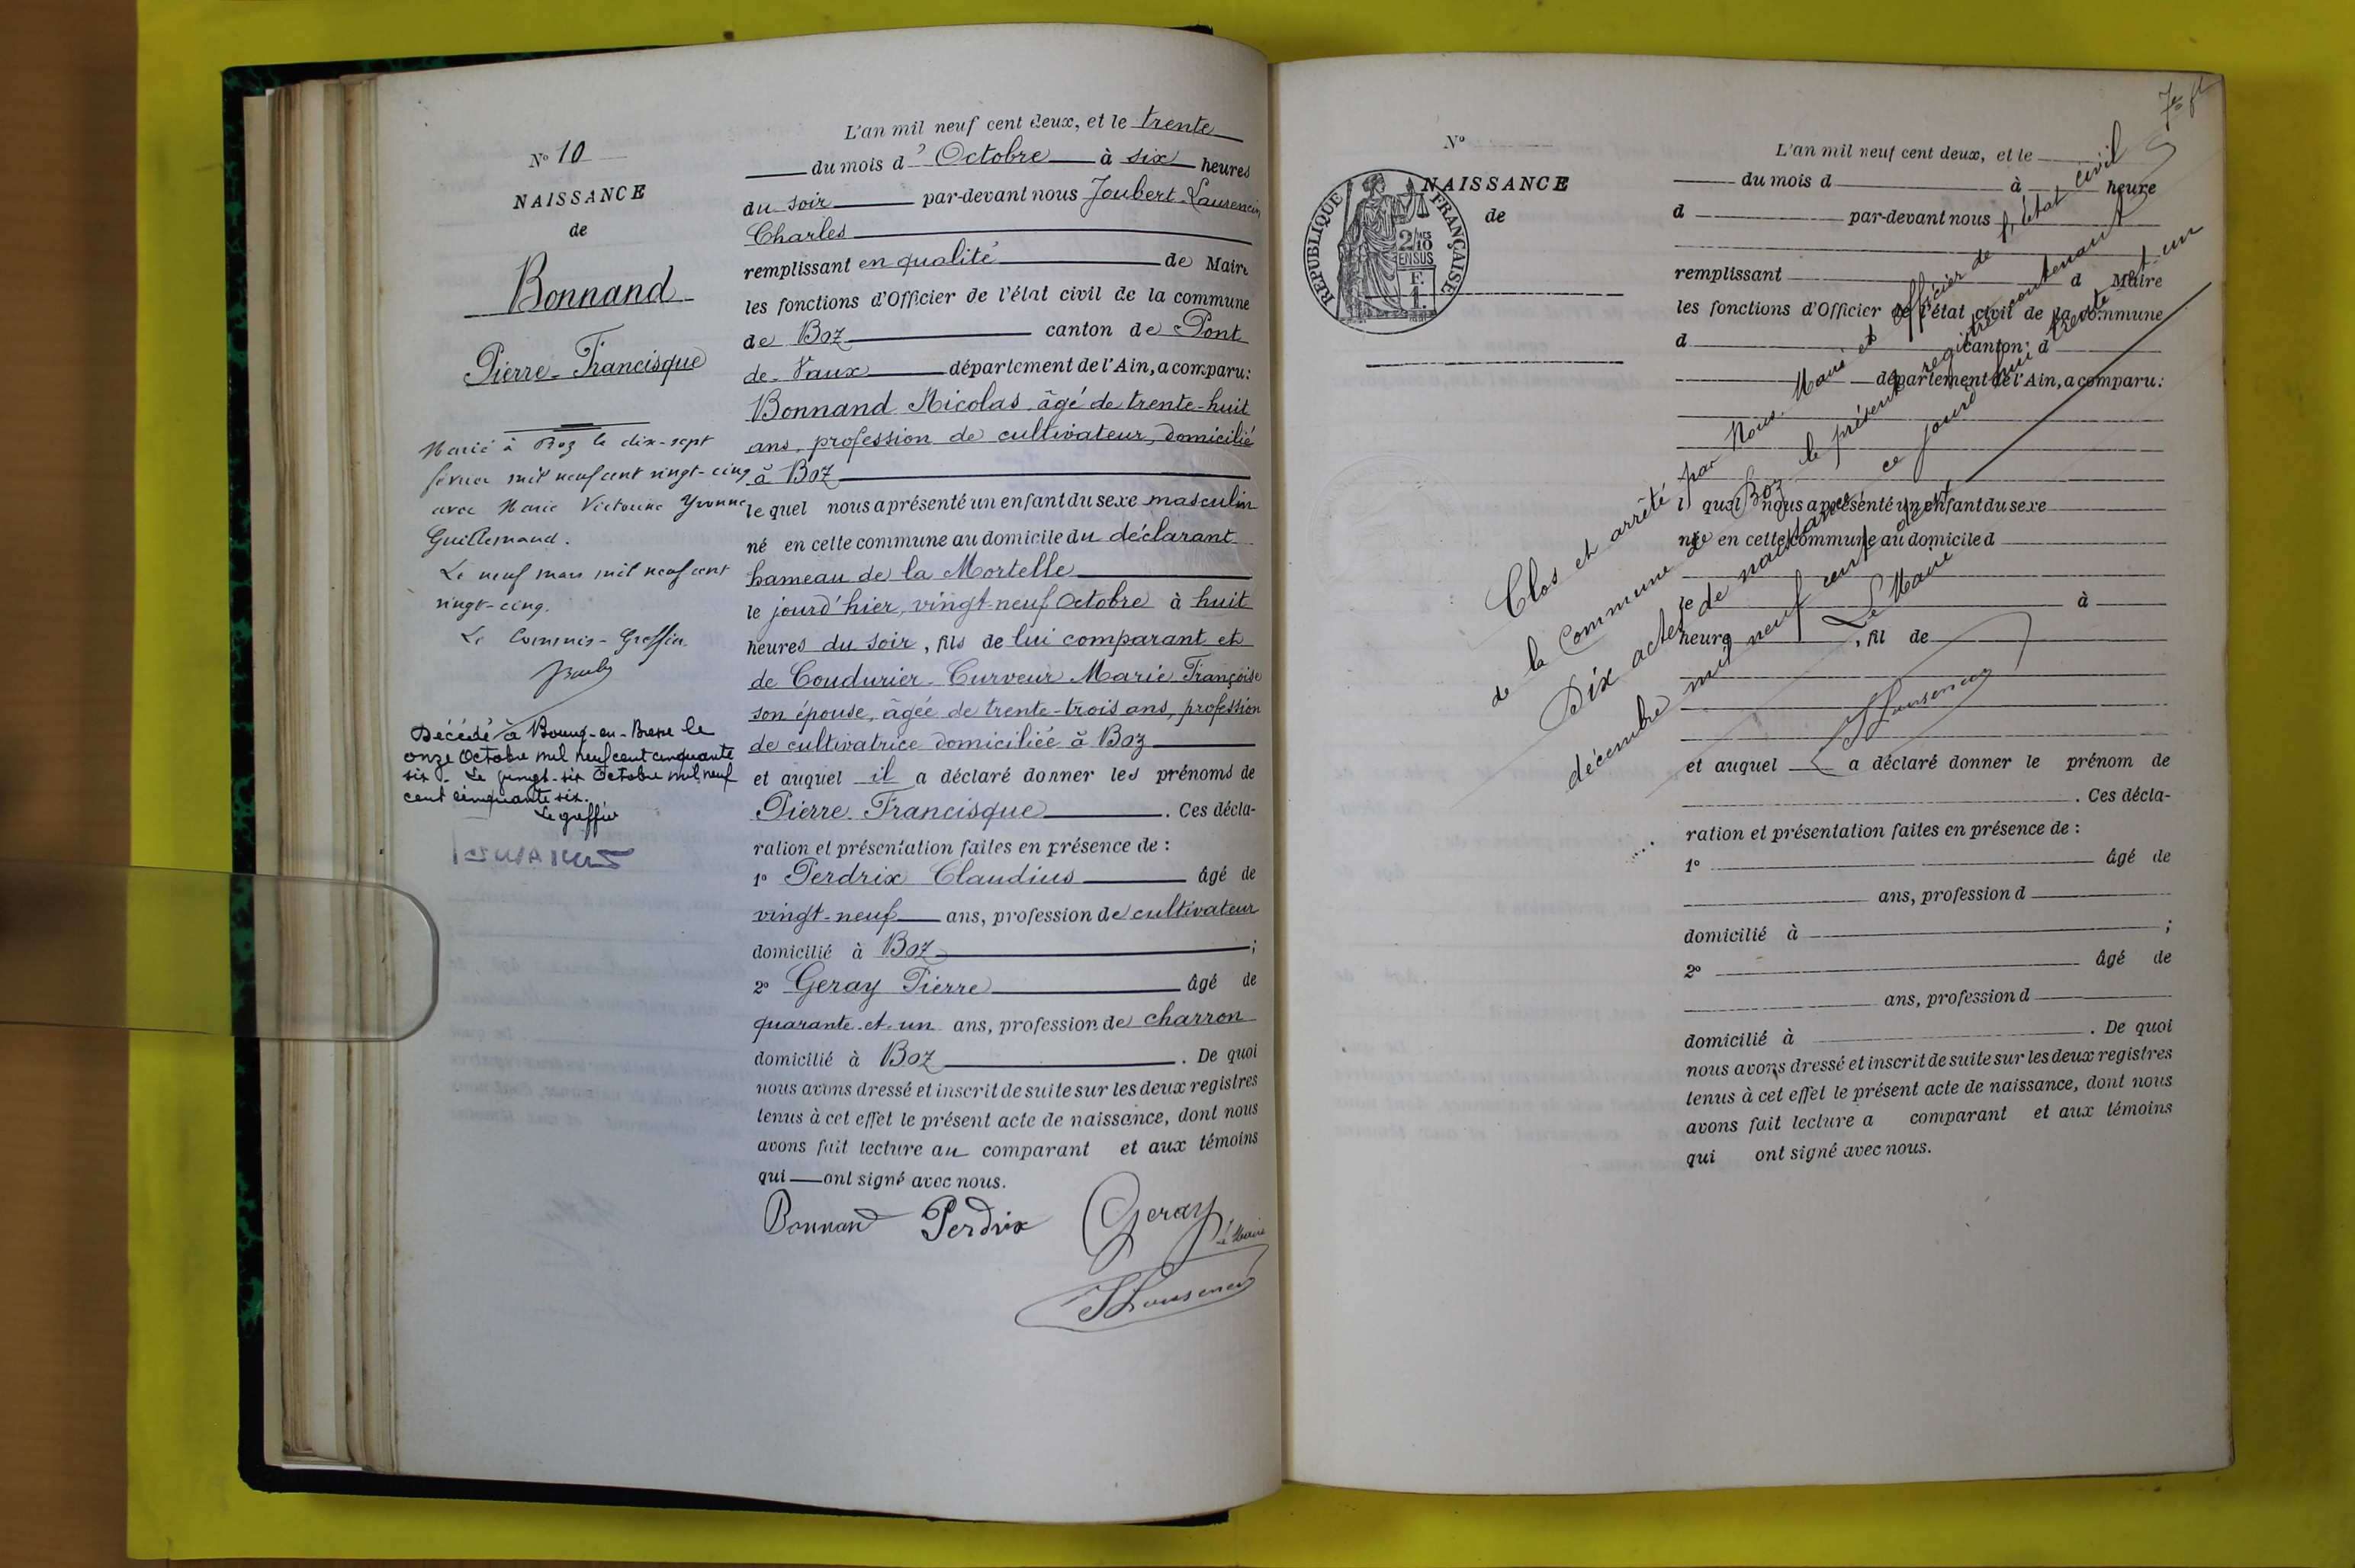 N° 10
NAISSANCE
de
Bonnand
Pierre-Francisque
Marié à Boz le dix-sept
février mil neuf cent vingt-cinq
avec Marie Victorine Yvonne
Guillemaud.
Le neuf mars mil neuf cent
vingt-cinq.
Le Commis-Greffier
Décédé à Bourg-en-Bresse le
onze Octobre mil neuf cent cinquante
six. Le vingt-six Octobre mil neuf
cent cinquante six.
Le greffier
L'an mil neuf cent deux, et le trente
du mois d'Octobre à six heures
du soir par-devant nous Joubert-Laurencin
Charles
remplissant en qualité de Maire
les fonctions d'Officier de l'état civil de la commune
de Boz canton de Pont
de-Vaux département de l'Ain, a comparu:
Bonnand Nicolas, âgé de trente-huit
ans, profession de cultivateur, domicilié
à Boz
lequel nous a présenté un enfant du sexe masculin
né en cette commune au domicile du déclarant
hameau de la Mortelle
le jourd'hier, vingt-neuf Octobre à huit
heures du soir, fils de lui comparant et
de Coudurier-Curveur Marie Françoise
son épouse, âgée de trente-trois ans, profession
de cultivatrice domiciliée à Boz
et auquel il a déclaré donner les prénoms de
Pierre Francisque. Ces décla-
ration et présentation faites en présence de :
1° Perdrix Claudius âgé de
vingt-neuf ans, profession de cultivateur
domicilié à Boz ;
2° Geray Pierre âgé de
quarante-et-un ans, profession de charron
domicilié à Boz. De quoi
nous avons dressé et inscrit de suite sur les deux registres
tenus à cet effet le présent acte de naissance, dont nous
avons fait lecture au comparant et aux témoins
qui ont signé avec nous.
Bonnand Perdrix Geray
Le Maire
JLaurencin
7e ft
N°
NAISSANCE
de
RÉPUBLIQUE FRANÇAISE
2/10 EN SUS
F.
1.
L'an mil neuf cent deux, et le
du mois d à heure
d par-devant nous
remplissant d Maire
les fonctions d'Officier de l'état civil de la commune
d canton d
département de l'Ain, a comparu:
l quel nous a présenté un enfant du sexe
né en cette commune au domicile d
le à
heure , fil de
et auquel a déclaré donner le prénom de
. Ces décla-
ration et présentation faites en présence de :
1° âgé de
ans, profession d
domicilié à ;
2° âgé de
ans, profession d
domicilié à . De quoi
nous avons dressé et inscrit de suite sur les deux registres
tenus à cet effet le présent acte de naissance, dont nous
avons fait lecture a comparant et aux témoins
qui ont signé avec nous.
Clos et arrêté par Nous Maire et Officier de l'état civil
de la Commune de Boz le présent registre contenant
Dix actes de naissance ce jourd'hui trente et un
décembre mil neuf cent deux
Le Maire
JLaurencin